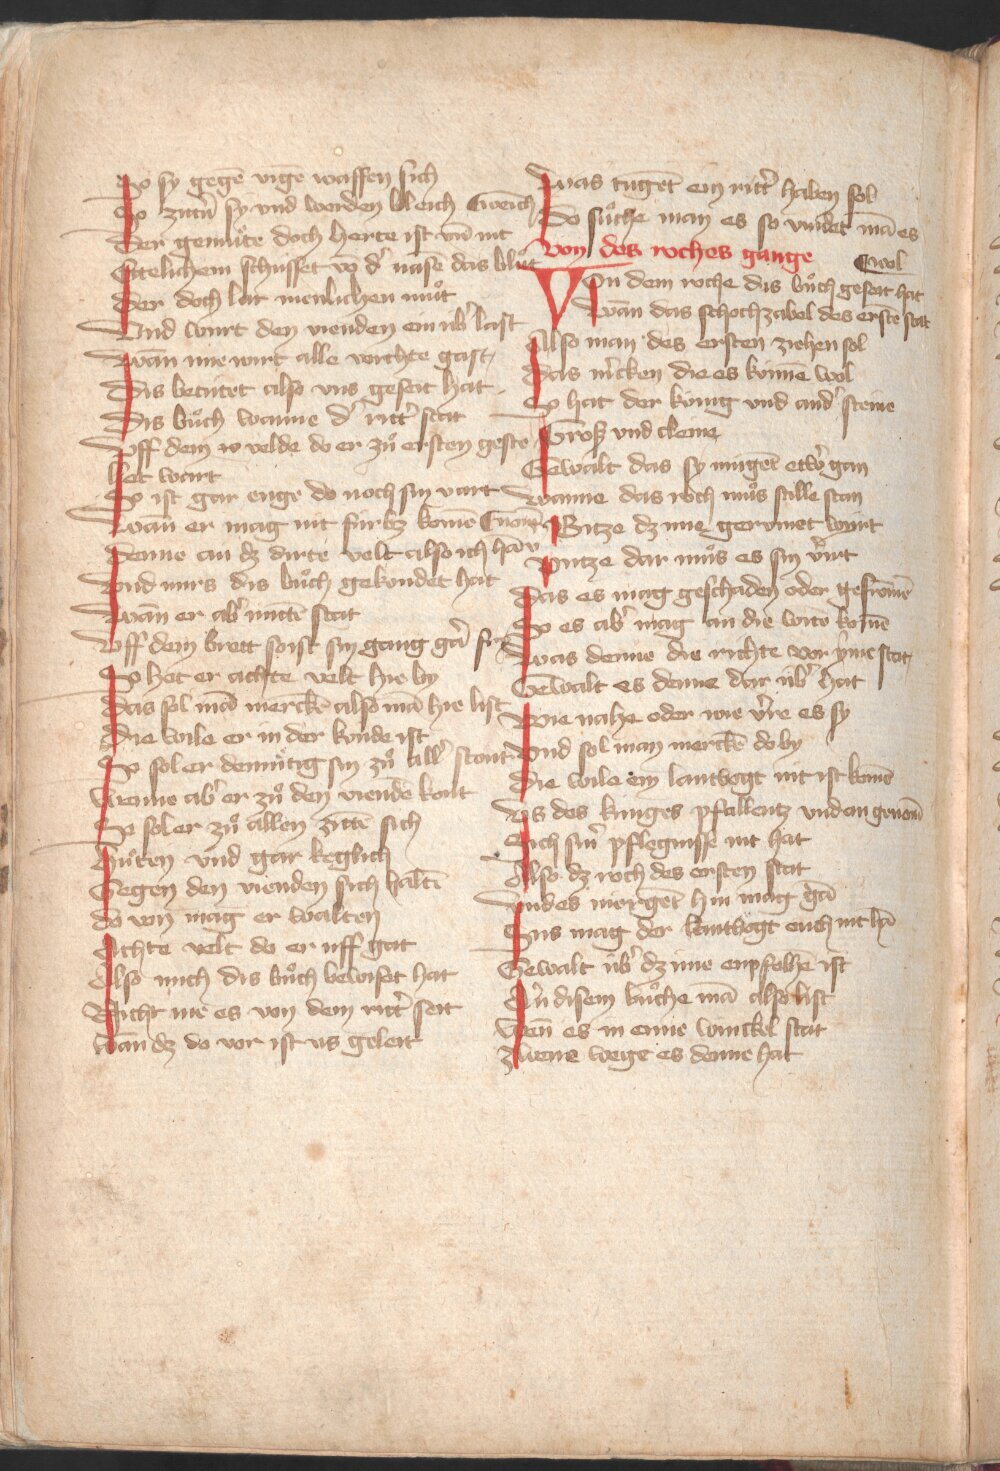 So sy gegē vigē waffen sich
So zittrn sy vnd werden bleich weich
Der gemuͤte doch herte ist vn̄ nit
Etelichem schusset vō dˀ nase das bluͦt
Der doch lar menlichen muͦt
Vnd wurt den vienden ein úbˀ last
Wan nie wirt alle vorchte gast
Dis betútet also vns geseit hat
Dis buͦch wanne dˀ rittˀ stat
Vff dem velde do er zuͦ ersten geste
let wart
So ist gar enge do noch sin vart
Wan er mag nit fúrbz komē
Denne an dz dirte velt also ich hān
Vnd mirs dis buͦch gekondet hat
Wan er abˀ mittē stat
Vff dem brett so ist sin gang gā
So het er achte velt hie by
Das sol mā merckē also mā hie list
Die wile er in der kunde ist
So sol er demuͤtig sin zuͦ allˀ stunt
Wenne abˀ er zuͦ den viendē kont
So sol er zuͦ allen zittē sich
Huͤten vnd gar keglich
Gegen den vienden sich haltē
do von mag er walten
Achte velt do er uff gat
Also mich dis buͦch bewiset hat
Nicht me es von dem rittˀ seit
Wan dz do vor ist us geleit
Was tugēt ein rittˀ haben sol
Do suͦche man es so vindet mā es
wol
Von des roches gange
VOn dem roche dis buͦch geseit hat
Wān das schochzabel des erste stat
Also man des ersten ziehen sol
Das mˀcken die es kōnne wol
So hat der kúnig vnd andˀ steine
Groß vnd cleine
Gewalt das sy mugēt etwˀ gan
Wanne das roch muͦs stille stan
Bitze dz ime gerumet wirt
Vntze dar muͦs es sin vˀirt
Das es mag geschaden oder gefromē
So es abˀ mag an die wite komē
Was denne die richte vor ýme stat
Gewalt es denne dar úbˀ hat
Wie nahe oder wie vˀre es sy
Vnd sol man merckē do by
Die wile ein lantvogt nit ist komē
Vs des kunges pfallentz vnd an genomē
Sich sinˀ pflegnisse nit hat
Also dz roch des ersten stat
Vnd es niergēt hin mag gā
Sus mag der lantvogt euch nit hā
Gewalt úbˀ dz ime enpfolhe ist
An disem buͦche mā also list
Wen es in eime winckel stat
Zwene wege es denne hat